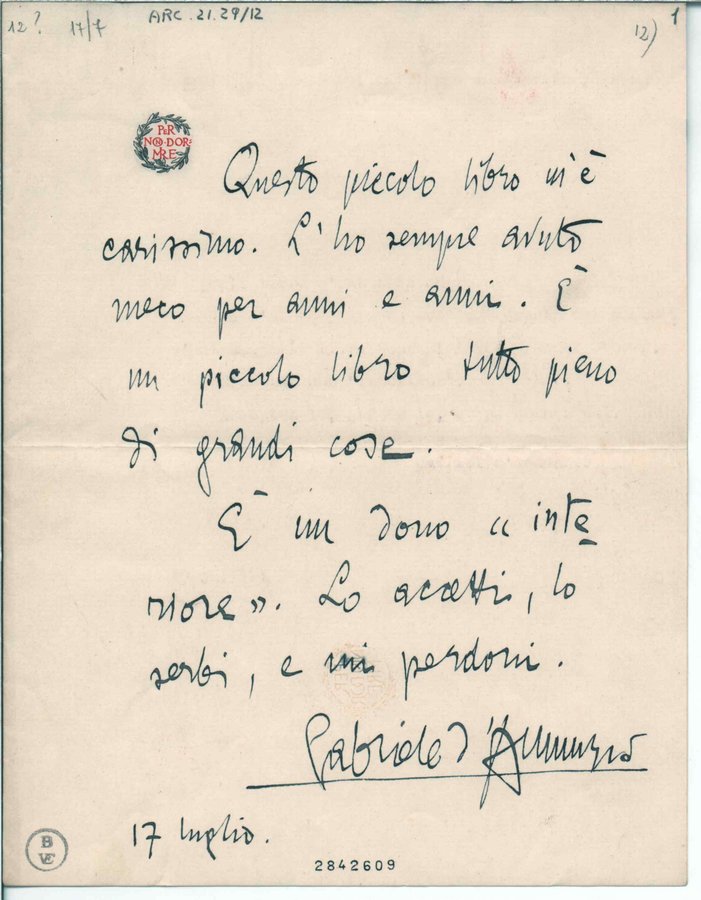 12? 17/7 ARC. 21. 29/12 1
12)
PER
NON DOR=
MIRE
Questo piccolo libro m'è
carissimo. L'ho sempre avuto
meco per anni e anni. È
un piccolo libro tutto pieno
di grandi cose.
È un dono « inte
riore ». Lo accetti, lo
serbi, e mi perdoni.
Gabriele d'Annunzio
17 luglio.
BVE
2842609